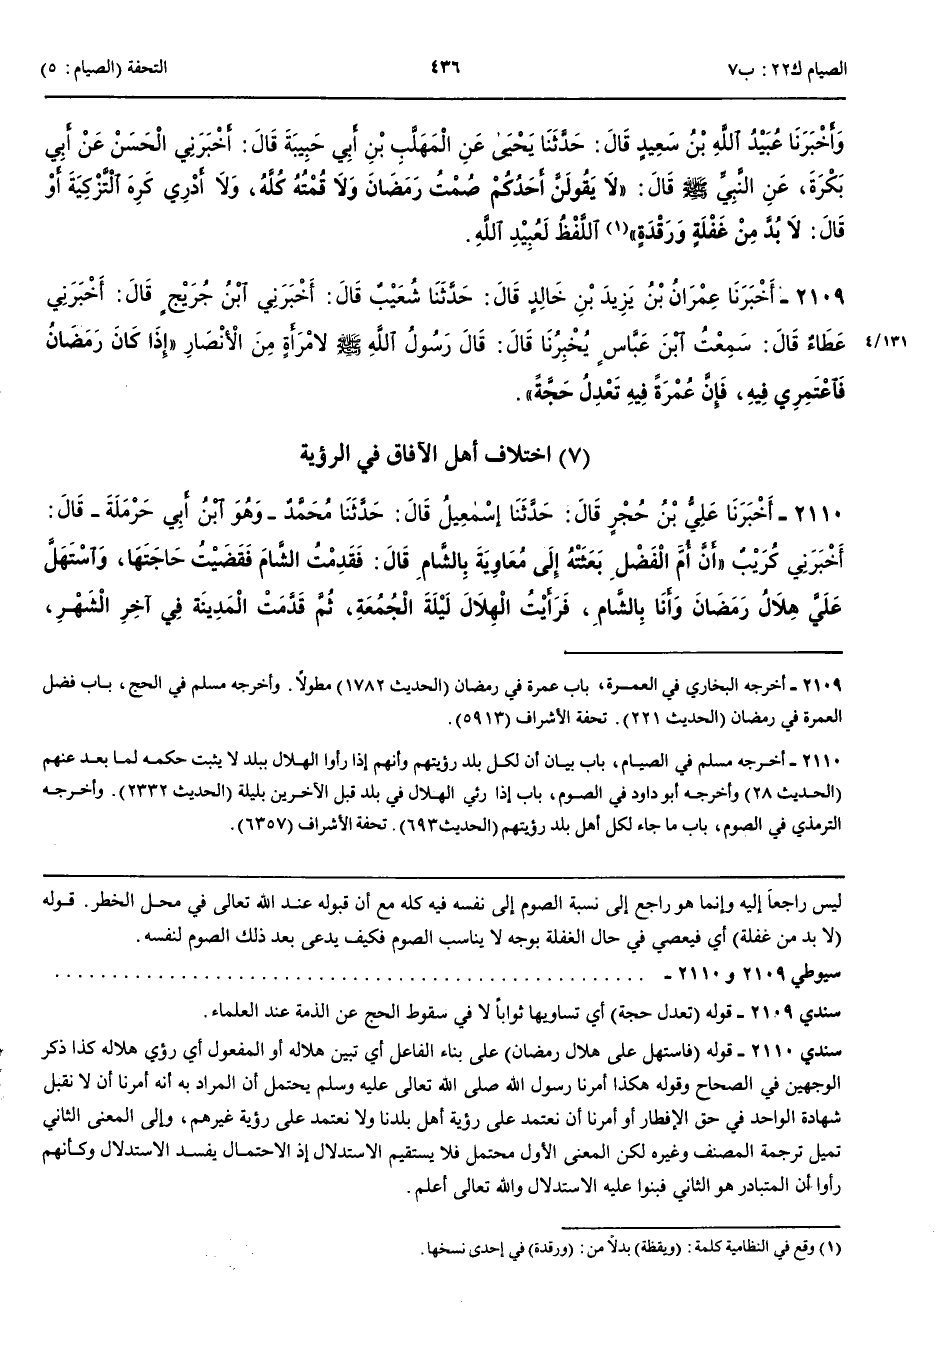 الصيام ك٢٢: ب٧ ٤٣٦ التحفة (الصيام: ٥)
وَأَخْبَرَنَا عُبَيْدُ ٱللَّهِ بْنُ سَعِيدٍ قَالَ: حَدَّثَنَا يَحْيَىٰ عَنِ الْمَهَلَّبِ بْنِ أَبِي حَبِيبَةَ قَالَ: أَخْبَرَنِي الْحَسَنُ عَنْ أَبِي
بَكْرَةَ، عَنِ النَّبِيِّ ﷺ قَالَ: «لَا يَقُولَنَّ أَحَدُكُمْ صُمْتُ رَمَضَانَ وَلَا قُمْتُهُ كُلَّهُ، وَلَا أَدْرِي كَرِهَ ٱلتَّزْكِيَةَ أَوْ
قَالَ: لَا بُدَّ مِنْ غَفْلَةٍ وَرَقْدَةٍ»(١) ٱللَّفْظُ لَعُبِيْدِ ٱللَّهِ.
٢١٠٩ ـ أَخْبَرَنَا عِمْرَانُ بْنُ يَزِيدَ بْنِ خَالِدٍ قَالَ: حَدَّثَنَا شُعَيْبٌ قَالَ: أَخْبَرَنِي ٱبْنُ جُرَيْجٍ قَالَ: أَخْبَرَنِي
٤/١٣١ عَطَاءٌ قَالَ: سَمِعْتُ ٱبْنَ عَبَّاسٍ يُخْبِرُنَا قَالَ: قَالَ رَسُولُ ٱللَّهِ ﷺ لامْرَأَةٍ مِنَ الْأَنْصَارِ «إِذَا كَانَ رَمَضَانُ
فَٱعْتَمِرِي فِيهِ، فَإِنَّ عُمْرَةً فِيهِ تَعْدِلُ حَجَّةً».
(٧) اختلاف أهل الآفاق في الرؤية
٢١١٠ ـ أَخْبَرَنَا عَلِيُّ بْنُ حُجْرٍ قَالَ: حَدَّثَنَا إِسْمٰعِيلُ قَالَ: حَدَّثَنَا مُحَمَّدٌ ـ وَهُوَ ٱبْنُ أَبِي حَرْمَلَةَ ـ قَالَ:
أَخْبَرَنِي كُرَيْبٌ «أَنَّ أُمَّ الْفَضْلِ بَعَثَتْهُ إِلَى مُعَاوِيَةَ بِالشَّامِ قَالَ: فَقَدِمْتُ الشَّامَ فَقَضَيْتُ حَاجَتَهَا، وَٱسْتَهَلَّ
عَلَيَّ هِلَالُ رَمَضَانَ وَأَنَا بِالشَّامِ، فَرَأَيْتُ الْهِلَالَ لَيْلَةَ الْجُمُعَةِ، ثُمَّ قَدَّمَتْ الْمَدِينَةَ فِي آخِرِ الْشَّهْرِ،
٢١٠٩ ـ أخرجه البخاري في العمرة، باب عمرة في رمضان (الحديث ١٧٨٢) مطولاً. وأخرجه مسلم في الحج، باب فضل
العمرة في رمضان (الحديث ٢٢١). تحفة الأشراف (٥٩١٣).
٢١١٠ ـ أخرجه مسلم في الصيام، باب بيان أن لكل بلد رؤيتهم وأنهم إذا رأوا الهلال ببلد لا يثبت حكمه لما بعد عنهم
(الحديث ٢٨) وأخرجه أبو داود في الصوم، باب إذا رئي الهلال في بلد قبل الآخرين بليلة (الحديث ٢٣٣٢). وأخرجه
الترمذي في الصوم، باب ما جاء لكل أهل بلد رؤيتهم (الحديث٦٩٣). تحفة الأشراف (٦٣٥٧).
ليس راجعاً إليه وإنما هو راجع إلى نسبة الصوم إلى نفسه فيه كله مع أن قبوله عند الله تعالى في محل الخطر. قوله
(لا بد من غفلة) أي فيعصي في حال الغفلة بوجه لا يناسب الصوم فكيف يدعى بعد ذلك الصوم لنفسه.
سيوطي ٢١٠٩ و ٢١١٠ ـ ..................................................
سندي ٢١٠٩ ـ قوله (تعدل حجة) أي تساويها ثواباً لا في سقوط الحج عن الذمة عند العلماء.
سندي ٢١١٠ ـ قوله (فاستهل على هلال رمضان) على بناء الفاعل أي تبين هلاله أو المفعول أي رؤي هلاله كذا ذكر
الوجهين في الصحاح وقوله هكذا أمرنا رسول الله صلى الله تعالى عليه وسلم يحتمل أن المراد به أنه أمرنا أن لا نقبل
شهادة الواحد في حق الإفطار أو أمرنا أن نعتمد على رؤية أهل بلدنا ولا نعتمد على رؤية غيرهم، وإلى المعنى الثاني
تميل ترجمة المصنف وغيره لكن المعنى الأول محتمل فلا يستقيم الاستدلال إذ الاحتمال يفسد الاستدلال وكأنهم
رأوا أن المتبادر هو الثاني فبنوا عليه الاستدلال والله تعالى أعلم.
(١) وقع في النظامية كلمة: (ويقظة) بدلاً من: (ورقدة) في إحدى نسخها.